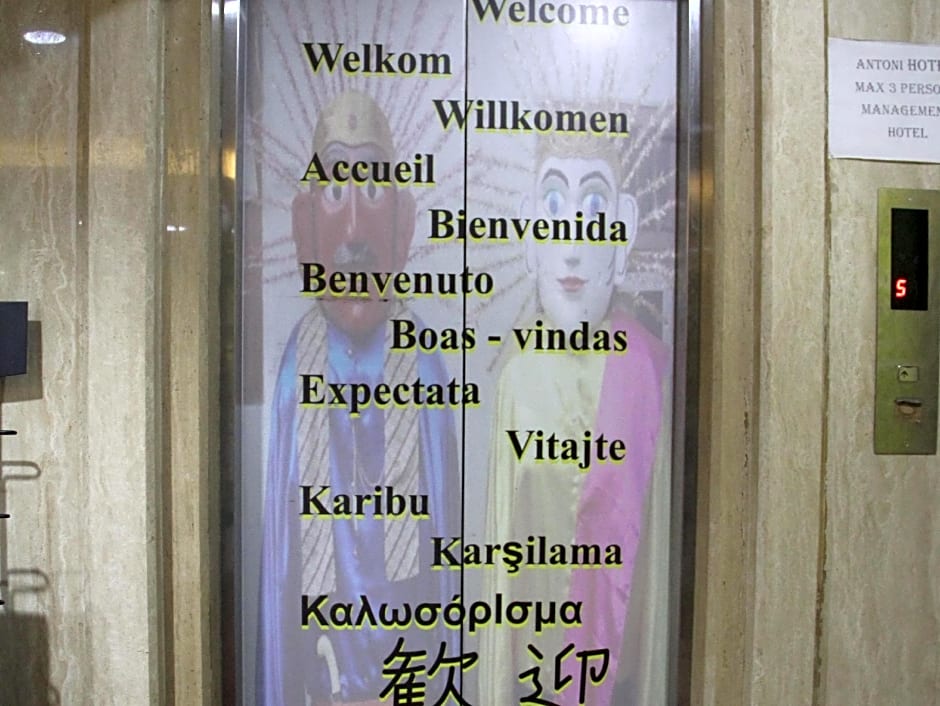 Welcome
Welkom
Willkomen
Accueil
Bienvenida
Benvenuto
Boas - vindas
Expectata
Vitajte
Karibu
Karşilama
Καλωσόρισμα
歓迎
ANTONI
MAX 3
HOTEL
5